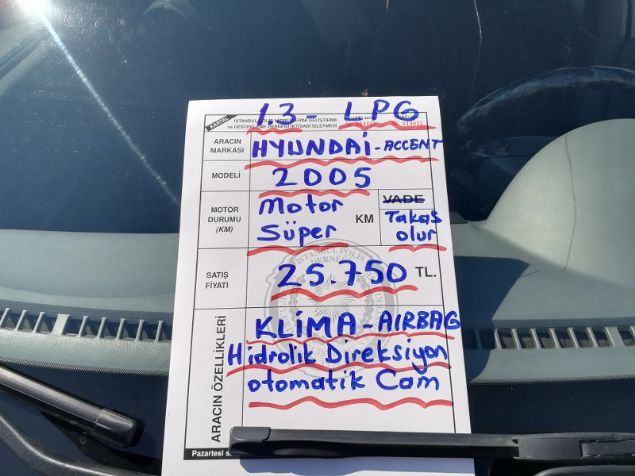 1.3 - LPG
ARACIN MARKASI HYUNDAİ - ACCENT
MODELİ 2005
MOTOR DURUMU (KM) Motor Süper KM VADE Takaş olur
SATIŞ FİYATI 25.750 TL.
ARACIN ÖZELLİKLERİ
KLİMA - AIRBAG
Hidrolik Direksiyon
otomatik Cam
Pazartesi